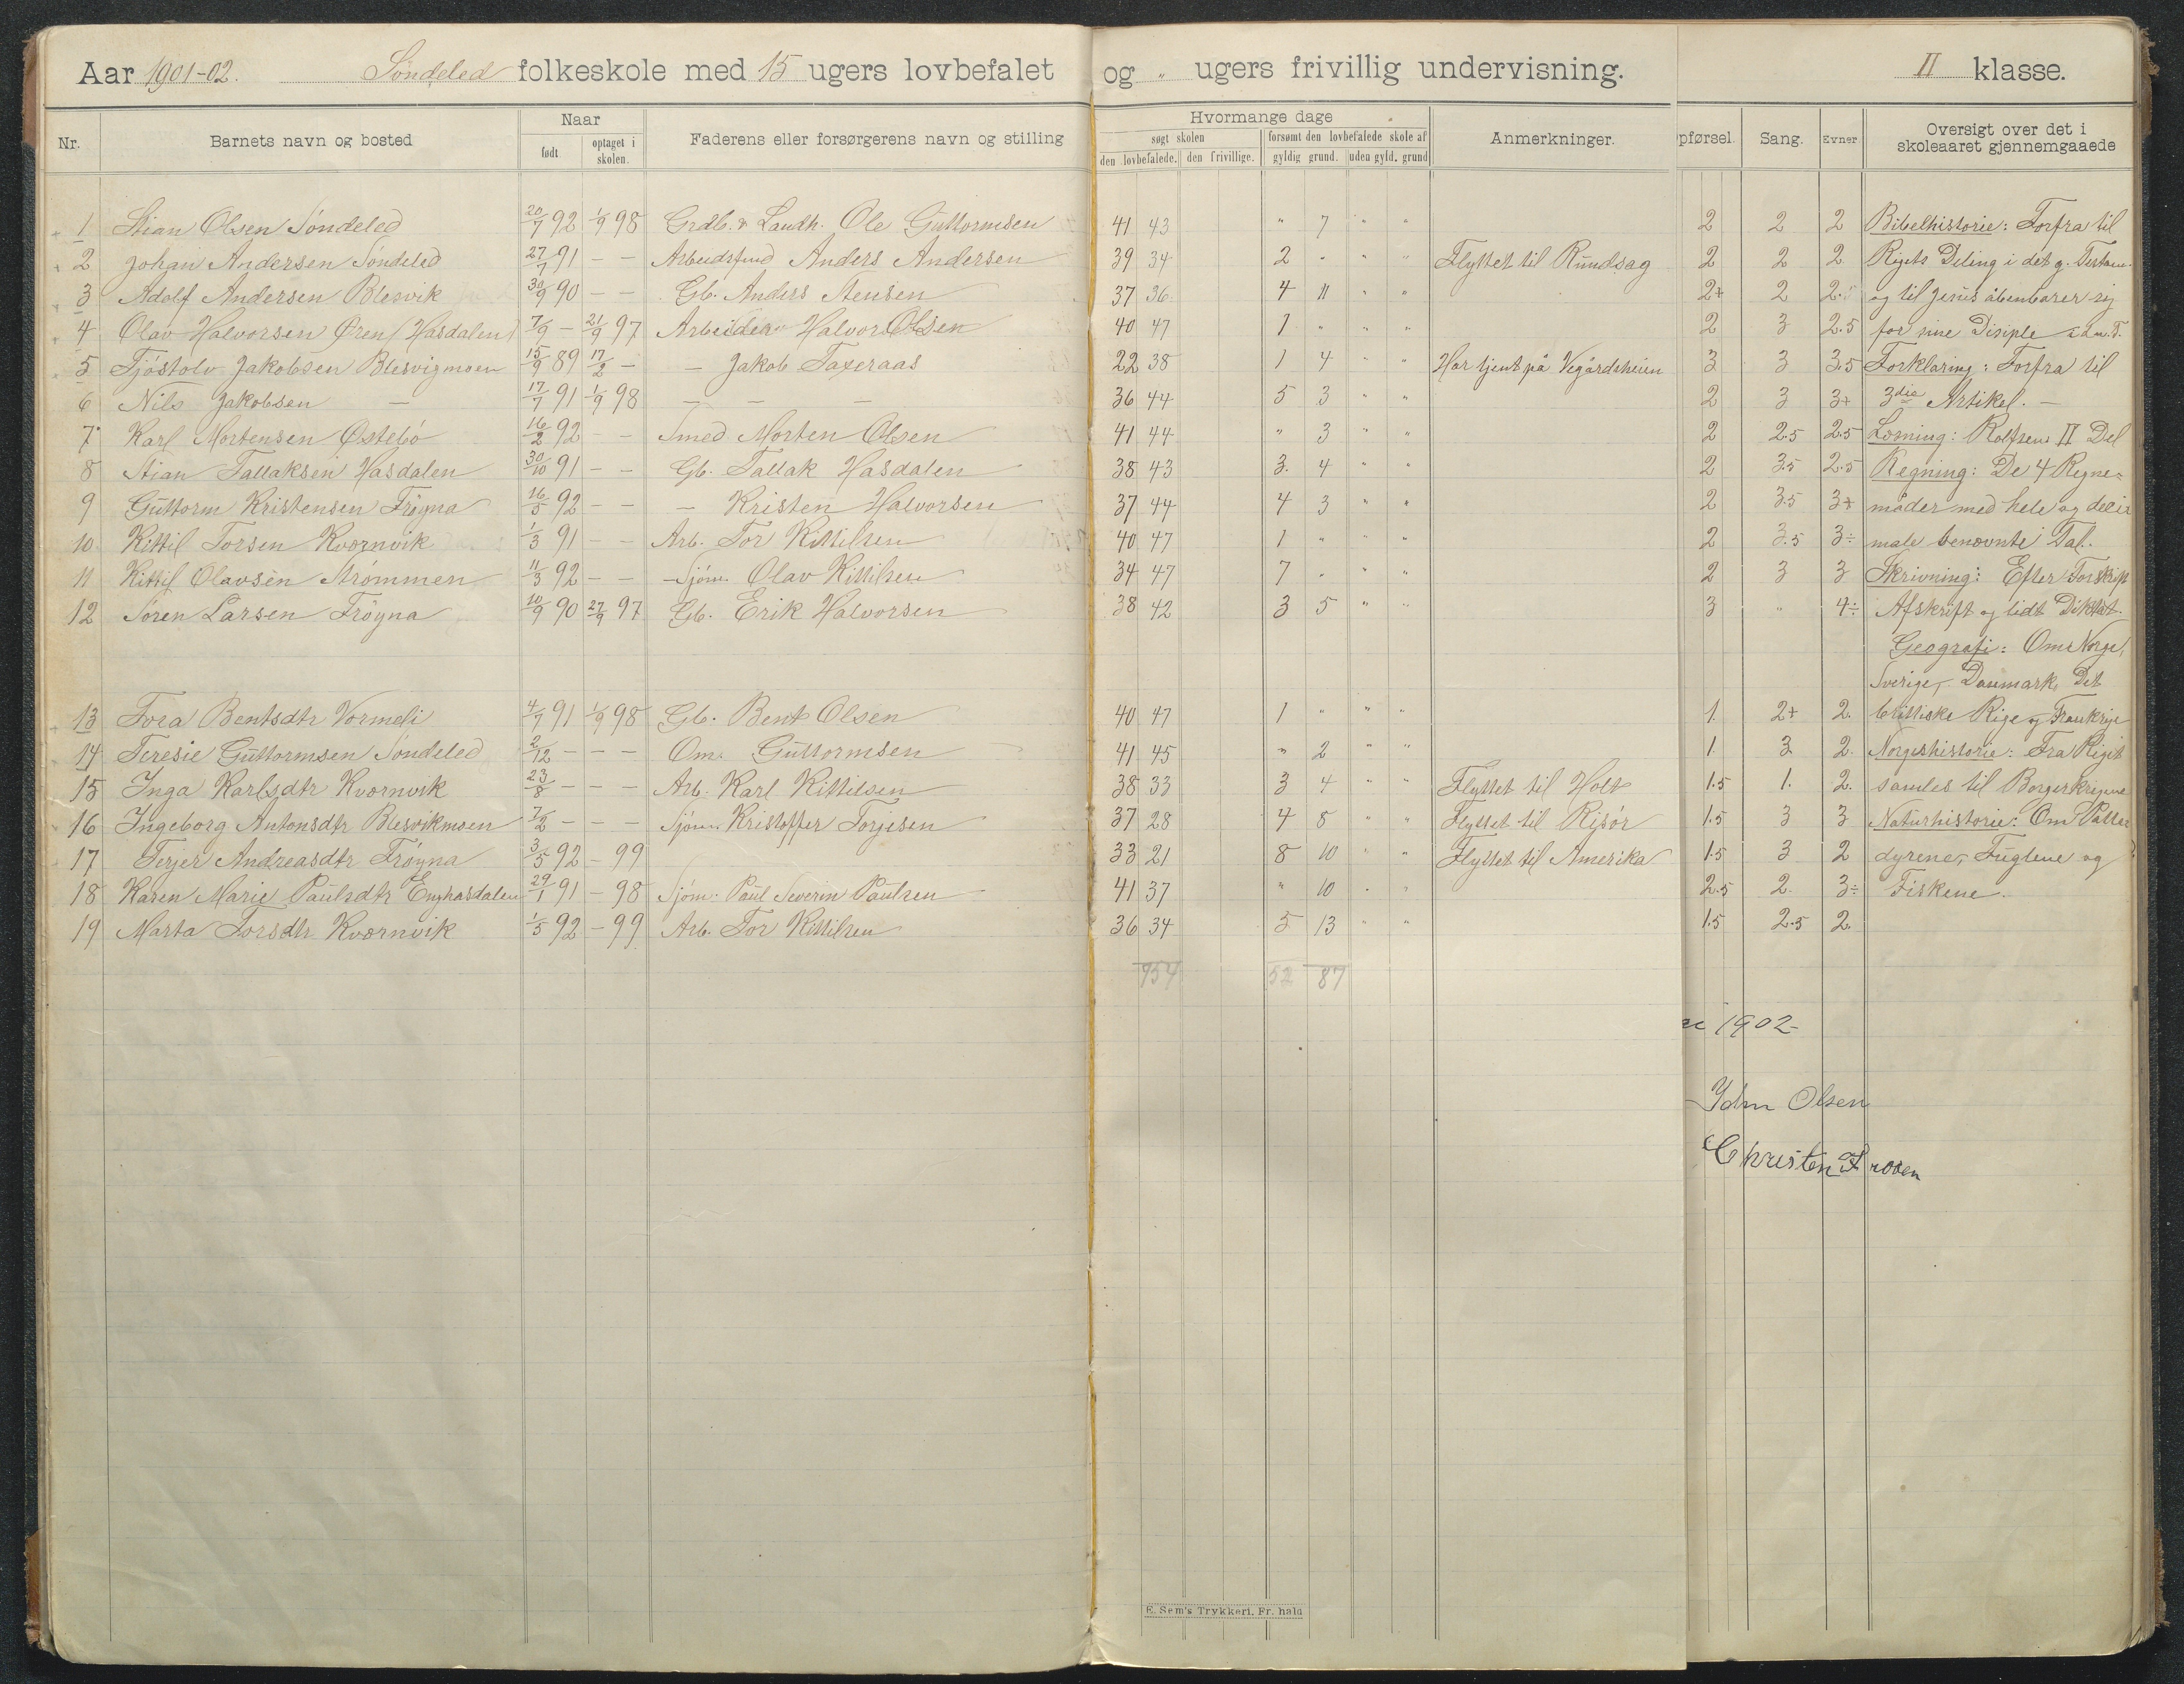 Aar 1901-02. Söndeled folkeskole med 15 ugers lovbefalet og " ugers frivillig undervisning. II klasse.
Nr. Barnets navn og bosted Naar født optaget i skolen. Faderens eller forsørgerens navn og stilling Hvormange dage søgt skolen den lovbefalede. den frivillige. forsømt den lovbefalede skole af gyldig grund. uden gyld. grund Anmerkninger. pførsel. Sang. Evner Oversigt over det i skoleaaret gjennemgaaede
1 Stian Olsen Söndeled 20/7 92 1/9 98 Grdb. & Landh. Ole Guttormsen 41 43 " 7 " " 2 2 2 Bibelhistorie: Forfra til
2 Johan Andersen Söndeled 27/7 91 - - Arbeidsfmd Anders Andersen 39 34 2 " " " Flyttet til Rundsag 2 2 2 Rigets Deling i det g. Testam.
3 Adolf Andersen Blesvik 30/9 90 - - Gb. Anders Stensen 37 36 4 11 " " 2+ 2 2.5 og til Jesus åbenbarer sig
4 Olav Halvorsen Øren (Hasdalen) 7/9 - 21/9 97 Arbeider Halvor Olsen 40 47 1 " " " 2 3 2.5 for sine Disiple i d. n. T.
5 Tjöstolv Jakobsen Blesvigmoen 15/9 89 17/2 - - Jakob Taxeraas 22 38 1 4 " " Har tjent på Vegårdsheien 3 3 3.5 Forklaring: Forfra til
6 Nils Jakobsen - 17/7 91 1/9 98 - - - 36 44 5 3 " " 2 3 3+ 3die Artikel. -
7 Karl Mortensen Østebö 16/2 92 - - Smed Morten Olsen 41 44 " 3 " " 2 2.5 2.5 Læsning: Rolfsens II Del
8 Stian Tallaksen Hasdalen 30/10 91 - - Gb. Tallak Hasdalen 38 43 3. 4 " " 2 3.5 2.5 Regning: De 4 Regne-
9 Guttorm Kristensen Fröyna 16/5 92 - - - Kristen Halvorsen 37 44 4 3 " " 2 3.5 3+ måder med hele og deci
10 Kittil Torsen Kværnvik 1/3 91 - - Arb. Tor Kittilsen 40 47 1 " " " 2 3.5 3÷ male benævnte Tal.
11 Kittil Olavsen Strömmen 11/3 92 - - Sjöm. Olav Kittilsen 34 47 7 " " " 2 3 3 Skrivning: Efter Forskrift
12 Sören Larsen Fröyna 10/9 90 27/9 97 Gb. Erik Halvorsen 38 42 3 5 " " 3 " 4÷ Afskrift og lidt Diktat.
Geografi: Om Norge,
Sverige, Danmark, Det
13 Tora Bentsdtr Vormeli 4/7 91 1/9 98 Gb. Bent Olsen 40 47 1 " " " 1. 2+ 2. brittiske Rige og Frankrige
14 Teresie Guttormsen Söndeled 2/12 - - - Om. Guttormsen 41 45 " 2 " " 1. 3 2. Norgeshistorie: Fra Riget
15 Inga Karlsdtr Kværnvik 23/8 - - - Arb. Karl Kittilsen 38 33 3 4 " " Flyttet til Holt 1.5 1. 2. samles til Borgerkrigene
16 Ingeborg Antonsdtr Blesvikmoen 7/2 - - - Sjöm. Kristoffer Torjesen 37 28 4 8 " " Flyttet til Risör 1.5 3 3 Naturhistorie: Om Patte-
17 Terjer Andreasdtr Fröyna 3/5 92 - 99 33 21 8 10 " " Flyttet til Amerika 1.5 3 2 dyrene, Fuglene og
18 Karen Marie Paulsdtr Enghasdalen 29/1 91 - 98 Sjöm. Paul Severin Paulsen 41 37 " 10 " " 2.5 2. 3÷ Fiskene.
19 Marta Torsdtr Kværnvik 1/5 92 - 99 Arb. Tor Kittilsen 36 34 5 13 " " 1.5 2.5 2.
754 52 87
1902
Olsen
Christen
E. Sem's Trykkeri, Fr. hald